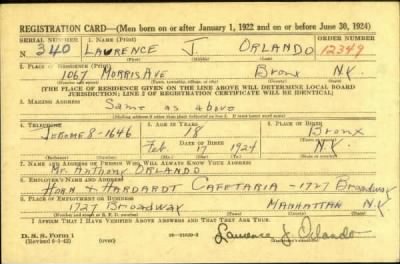 REGISTRATION CARD—(Men born on or after January 1, 1922 and on or before June 30, 1924)
SERIAL NUMBER 1. NAME (Print) ORDER NUMBER
N 340 LAWRENCE J. ORLANDO 12349
(First) (Middle) (Last)
2. PLACE OF RESIDENCE (Print)
1067 MORRIS AVE Bronx N.Y.
(Number and street) (Town, township, village, or city) (County) (State)
[THE PLACE OF RESIDENCE GIVEN ON THE LINE ABOVE WILL DETERMINE LOCAL BOARD
JURISDICTION; LINE 2 OF REGISTRATION CERTIFICATE WILL BE IDENTICAL]
3. MAILING ADDRESS
Same as above
[Mailing address if other than place indicated on line 2. If same insert word same]
4. TELEPHONE 5. AGE IN YEARS 6. PLACE OF BIRTH
JEROME 8-1646 18 Bronx
DATE OF BIRTH (Town or county)
Feb. 17 1924 N.Y.
(Exchange) (Number) (Mo.) (Day) (Yr.) (State or country)
7. NAME AND ADDRESS OF PERSON WHO WILL ALWAYS KNOW YOUR ADDRESS
Mr. Anthony ORLANDO
8. EMPLOYER'S NAME AND ADDRESS
HORN & HARDARDT CAFETARIA - 1727 Broadway
9. PLACE OF EMPLOYMENT OR BUSINESS
1727 Broadway MANHATTAN N.Y.
(Number and street or R. F. D. number) (Town) (County) (State)
I AFFIRM THAT I HAVE VERIFIED ABOVE ANSWERS AND THAT THEY ARE TRUE.
D. S. S. Form 1
(Revised 6-9-42) Lawrence J. Orlando